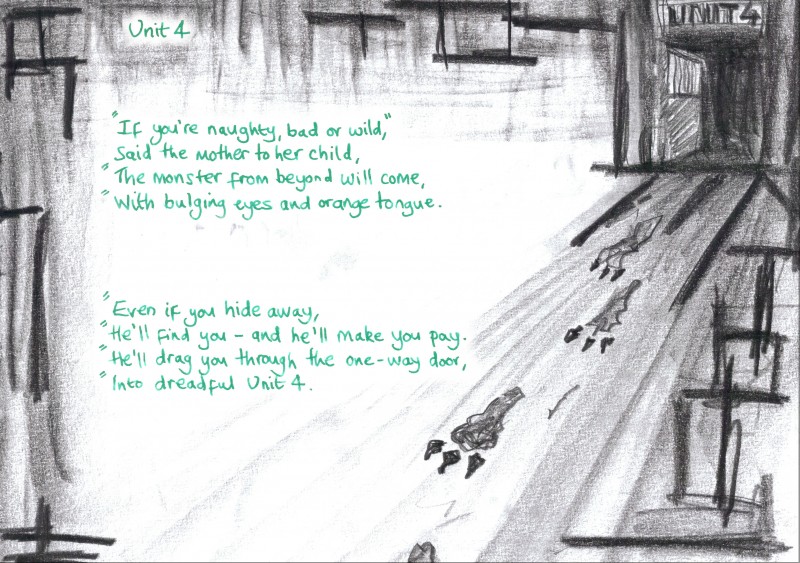 Unit 4
UNIT 4
"If you're naughty, bad or wild,"
Said the mother to her child,
"The monster from beyond will come,
"With bulging eyes and orange tongue.
"Even if you hide away,
"He'll find you – and he'll make you pay.
"He'll drag you through the one-way door,
"Into dreadful Unit 4.